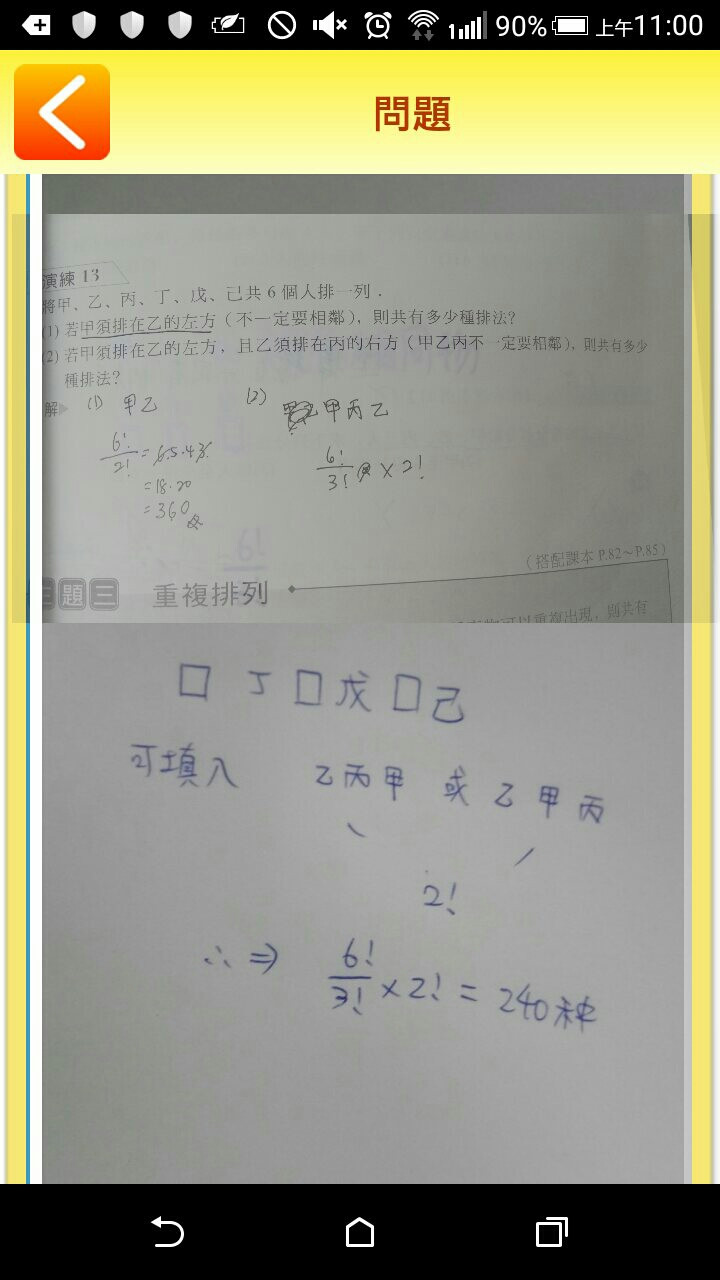 90% 上午11:00
問題
演練 13
將甲、乙、丙、丁、戊、己共 6 個人排一列．
(1) 若甲須排在乙的左方（不一定要相鄰），則共有多少種排法？
(2) 若甲須排在乙的左方，且乙須排在丙的右方（甲乙丙不一定要相鄰），則共有多少
種排法？
解 (1) 甲乙
6!/2! = 6.5.4.3.
=18.20
=360
(2) 甲丙乙
6!/3! × 2!
（搭配課本 P.82～P.85）
題三 重複排列
可以重複出現，則共有
□ 丁 □ 戊 □ 己
可填入 乙丙甲 或 乙甲丙
2!
∴ ⇒ 6!/3! × 2! = 240種